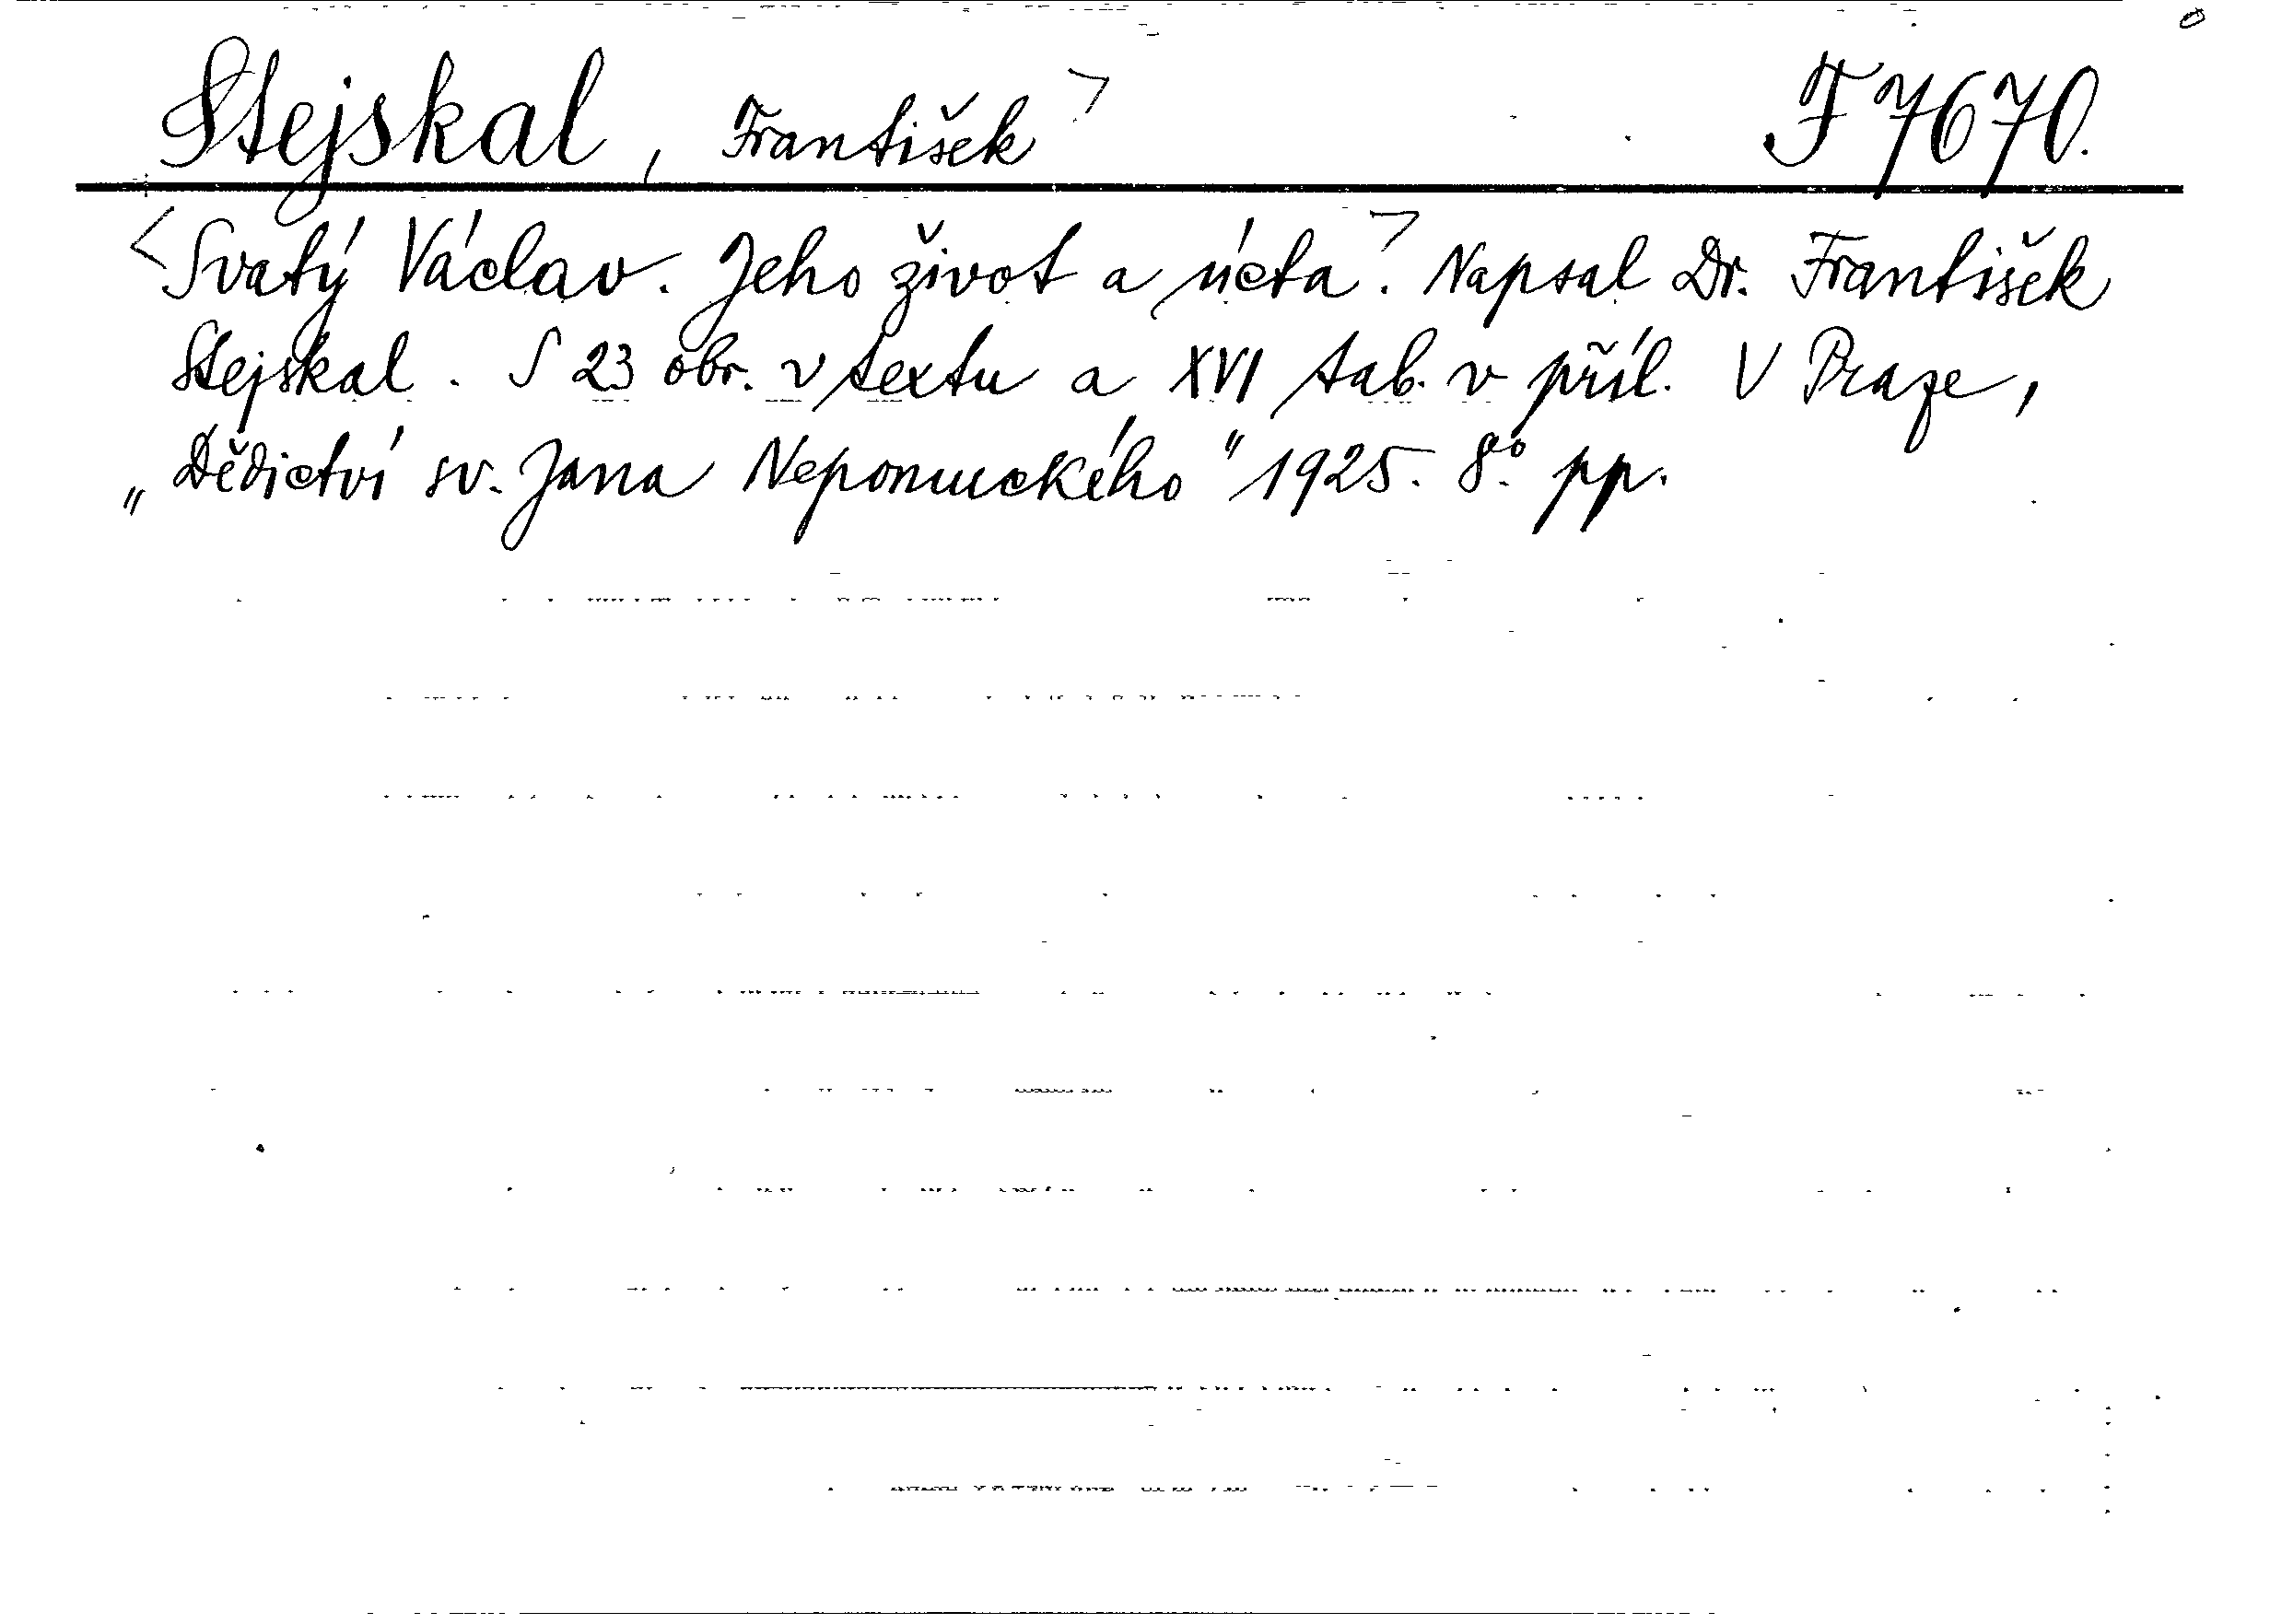 Stejskal, František> F 7670.
<Svatý Václav. Jeho život a úcta>. Napsal Dr. František
Stejskal. S 23 obr. v textu a XVI tab. v příl. V Praze,
„Dědictví sv. Jana Nepomuckého" 1925. 8°. pp.